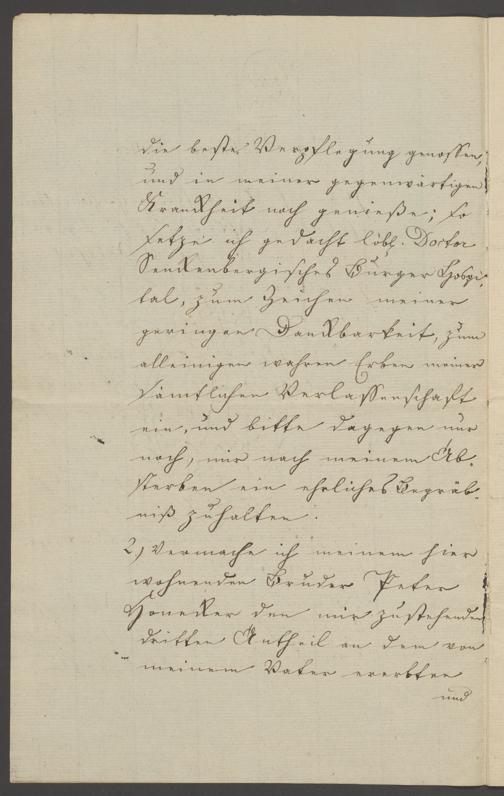 die beste Verpflegung genossen,
und in meiner gegenwärtigen
Krankheit noch genieße; so
setze ich gedacht löbl. Doctor
Senckenbergisches Bürger Hospi-
tal, zum Zeichen meiner
geringen Danckbarkeit, zum
alleinigen wahren Erben meiner
sämtlichen Verlassenschaft
ein, und bitte dagegen nur
noch, mir nach meinem Ab-
sterben ein ehrliches Begräb-
niß zuhalten.
2.) Vermache ich meinem hier
wohnenden Bruder Peter
Honecker den mir zustehenden
dritten Antheil an dem von
meinem Vater ererbten
und